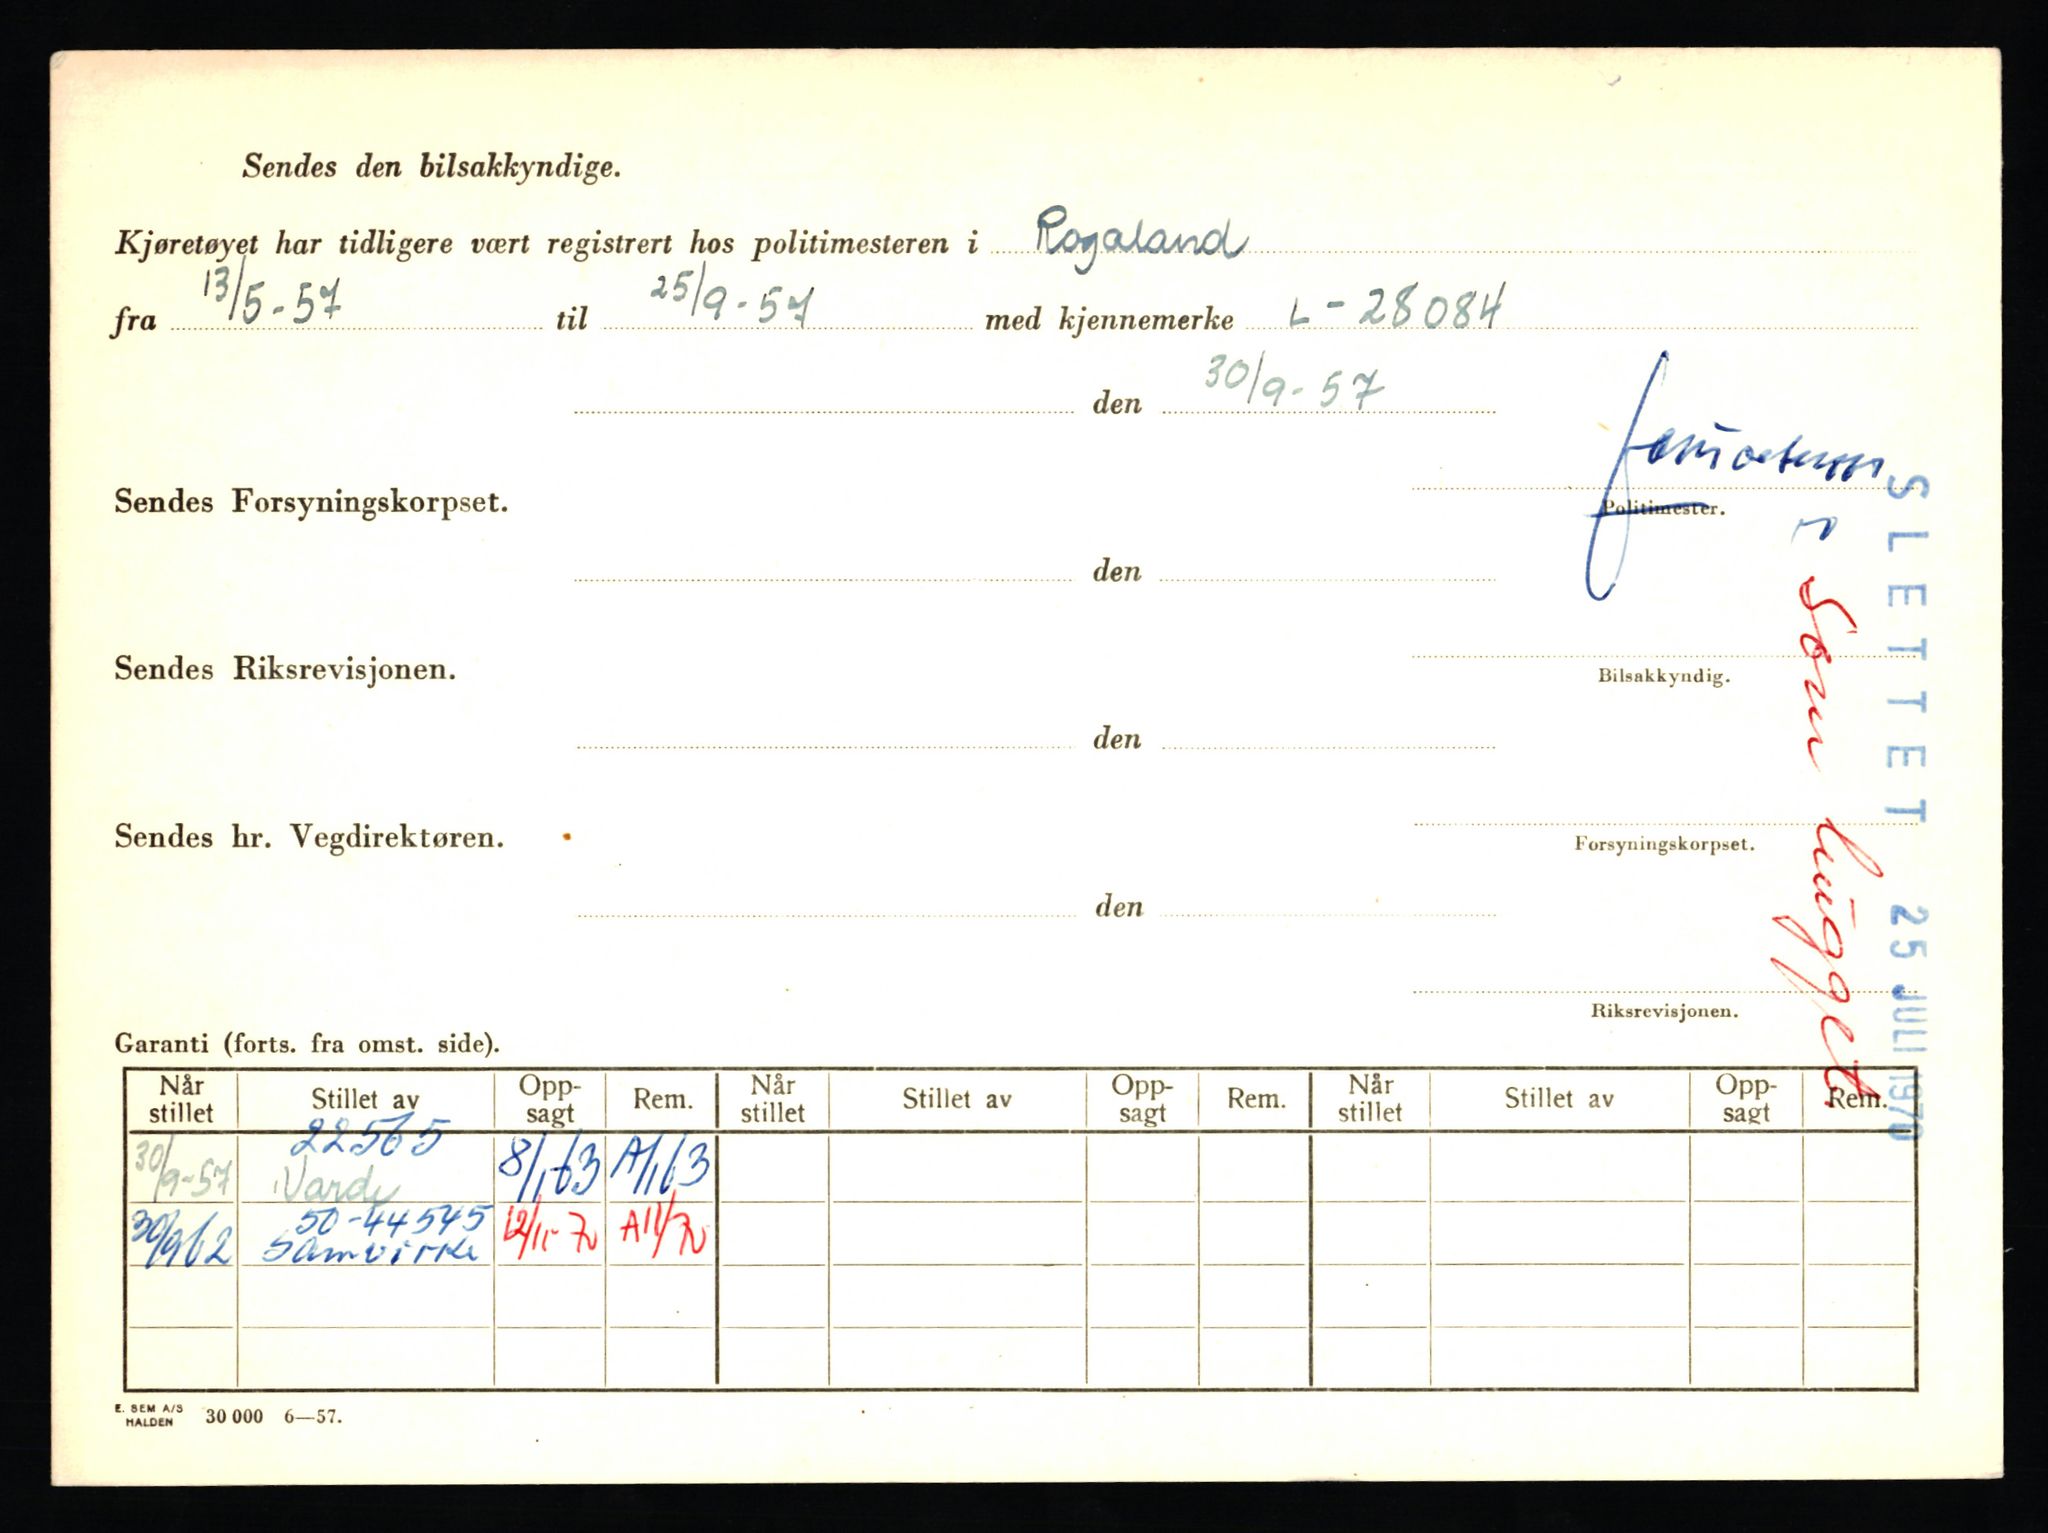 Sendes den bilsakkyndige.
Kjøretøyet har tidligere vært registrert hos politimesteren i Rogaland
fra 13/5-57 til 25/9-57 med kjennemerke L-28084
den 30/9-57
Sendes Forsyningskorpset.
Politimester.
den
Sendes Riksrevisjonen.
Bilsakkyndig.
den
Sendes hr. Vegdirektøren.
Forsyningskorpset.
den
Riksrevisjonen.
SLETTET 25 JULI 1970
som hugget
Garanti (forts. fra omst. side).
Når stillet Stillet av Opp-sagt Rem. Når stillet Stillet av Opp-sagt Rem. Når stillet Stillet av Opp-sagt Rem.
22565
30/9-57 Varde 8/1-63 A/1 63
50-44545
30/9 62 Samvirke 12/11-70 A11/70
E. SEM A/S
HALDEN 30 000 6—57.